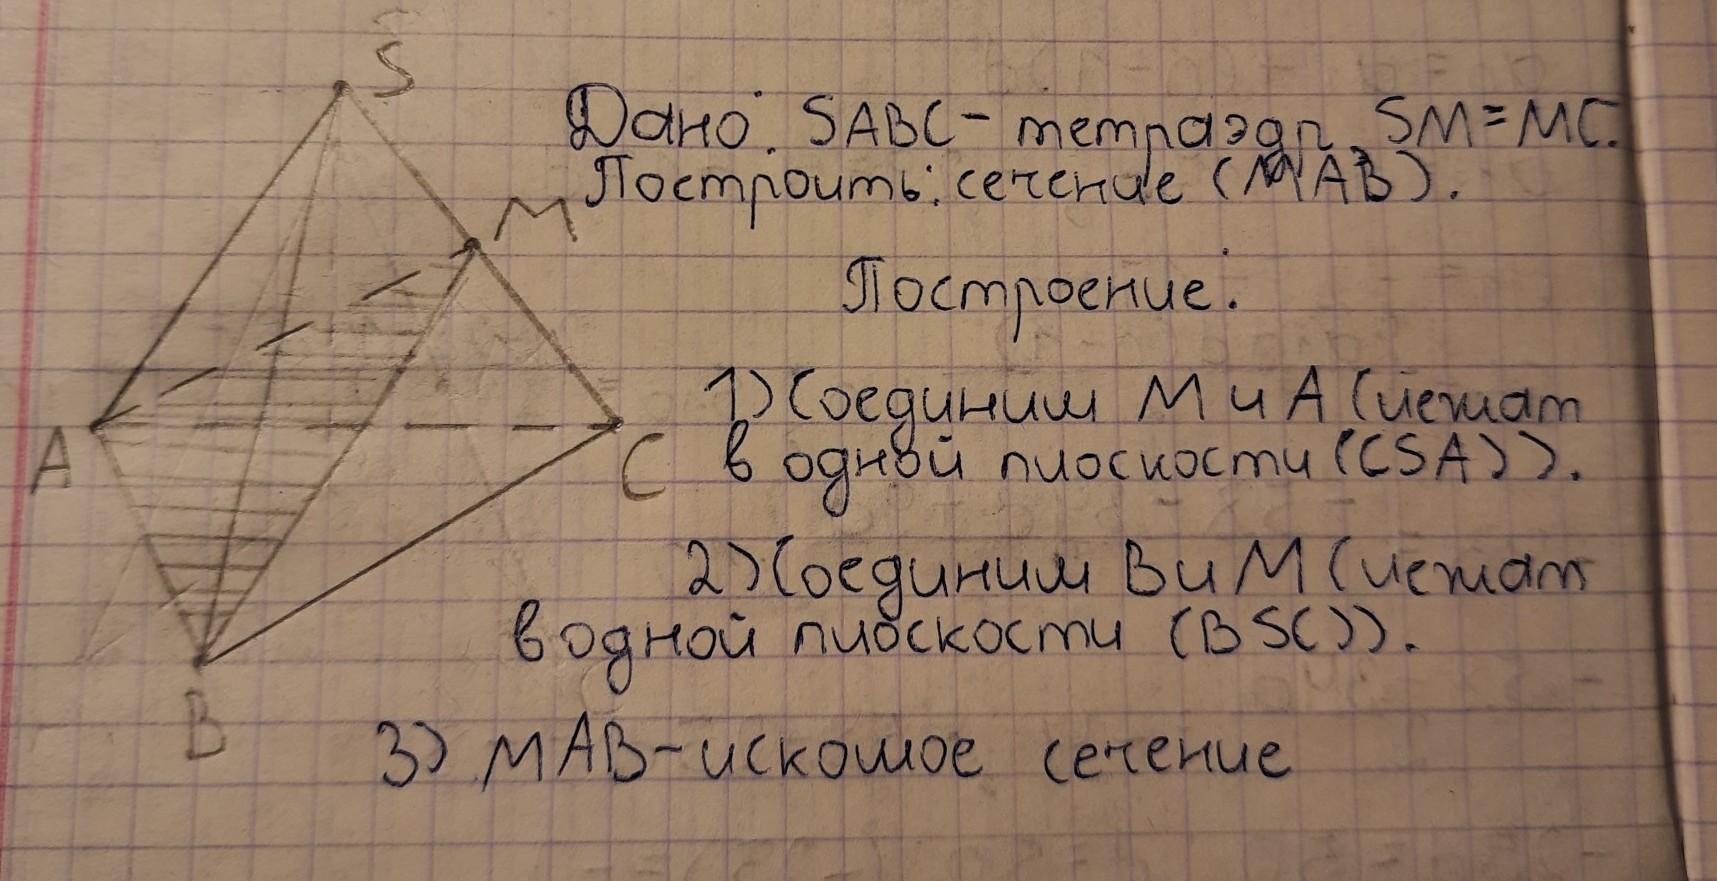 S
Дано: SABC - тетраэдр, SM = MC.
Построить: сечение (MAB).
M
Построение:
1) Соединим M и A (лежат
в одной плоскости (CSA)).
A
C
2) Соединим B и M (лежат
в одной плоскости (BSC)).
B
3) MAB - искомое сечение